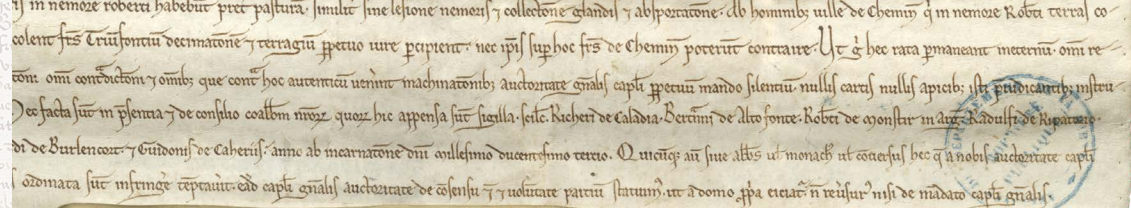 in nemore roberti habebunt pret pasturā. similit sine lesione nemoris ⁊ collectōne glandis ⁊ absportatōne. Ab hominib; uille de Chemin q̇ in nemore Rob̄ti terras co-
colent fr̄s Triūfontiū decimatōnē ⁊ terragiū ꝑpetuo iure ꝑcipient. nec ip̄is suꝑ hoc fr̄s de Chemin poterunt contraire. Ut g̊ hec rata ꝑmaneant inet̄num. om̄i re-
tōni. om̄i cont̄dictōni ⁊ om̄ib; que cont̄ hoc autenticū uen̄int machinatōnib; auctoritate gn̄alis capl̄i ꝑpetuū mando silentiū. nullis cartis nullis apicib; isti p̄iudicantib; instru-
Hec facta sūt in p̄sentia ⁊ de consilio coabb̄m nr̄oꝝ quoꝝ hic appensa sūt sigilla. scilc̄. Richeri de Caladia. Bert̄nni de Alto fonte. Rob̄ti de monst̄ in arg. Radulfi de Ripatorio.
di de Burlencort. ⁊ Guidonis de Caherus. anno ab incarnatōne dn̄i millesimo ducentesimo tercio. Quicūq; aū siue abb̄s ul̄ monach̄ ul̄ cōuersus hec q̄ a nobis auctoritate capl̄i
ordinata sūt infrinḡe tēptau̇it. eād̄ capl̄i gn̄alis auctoritate de cōsensu ⁊ uolūtate partiū statuim᷒. ut a domo ꝓpa eiciat᷒. n̄ reu̇sur᷒ nisi de mādato capl̄i gn̄alis.